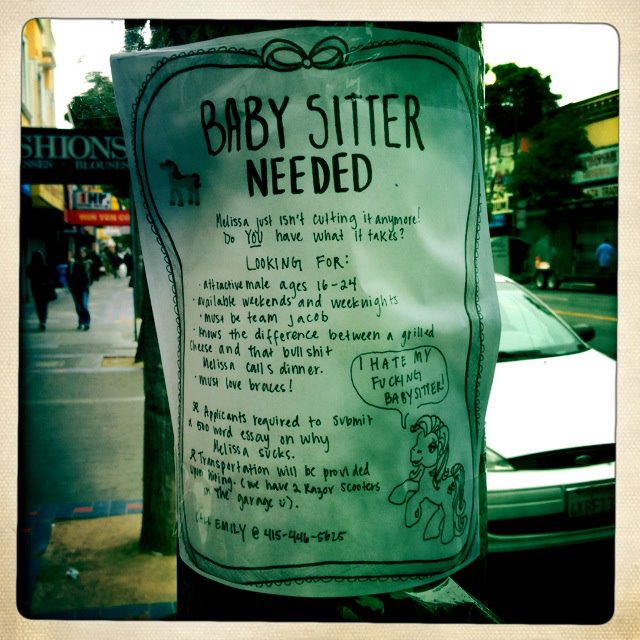 BABY SITTER
NEEDED
Melissa just isn't cutting it anymore!
Do YOU have what it takes?
LOOKING FOR:
· attractive male ages 16-24
· available weekends and weeknights
· must be team jacob
· knows the difference between a grilled
cheese and that bullshit
Melissa calls dinner.
· must love braces!
I HATE MY
FUCKING
BABYSITTER!
* Applicants required to submit
a 500 word essay on why
Melissa sucks.
* Transportation will be provided
upon hiring. (we have 2 Razor scooters
in the garage :)).
EMILY @ 415-446-5625
SHIONS
BLOUSES